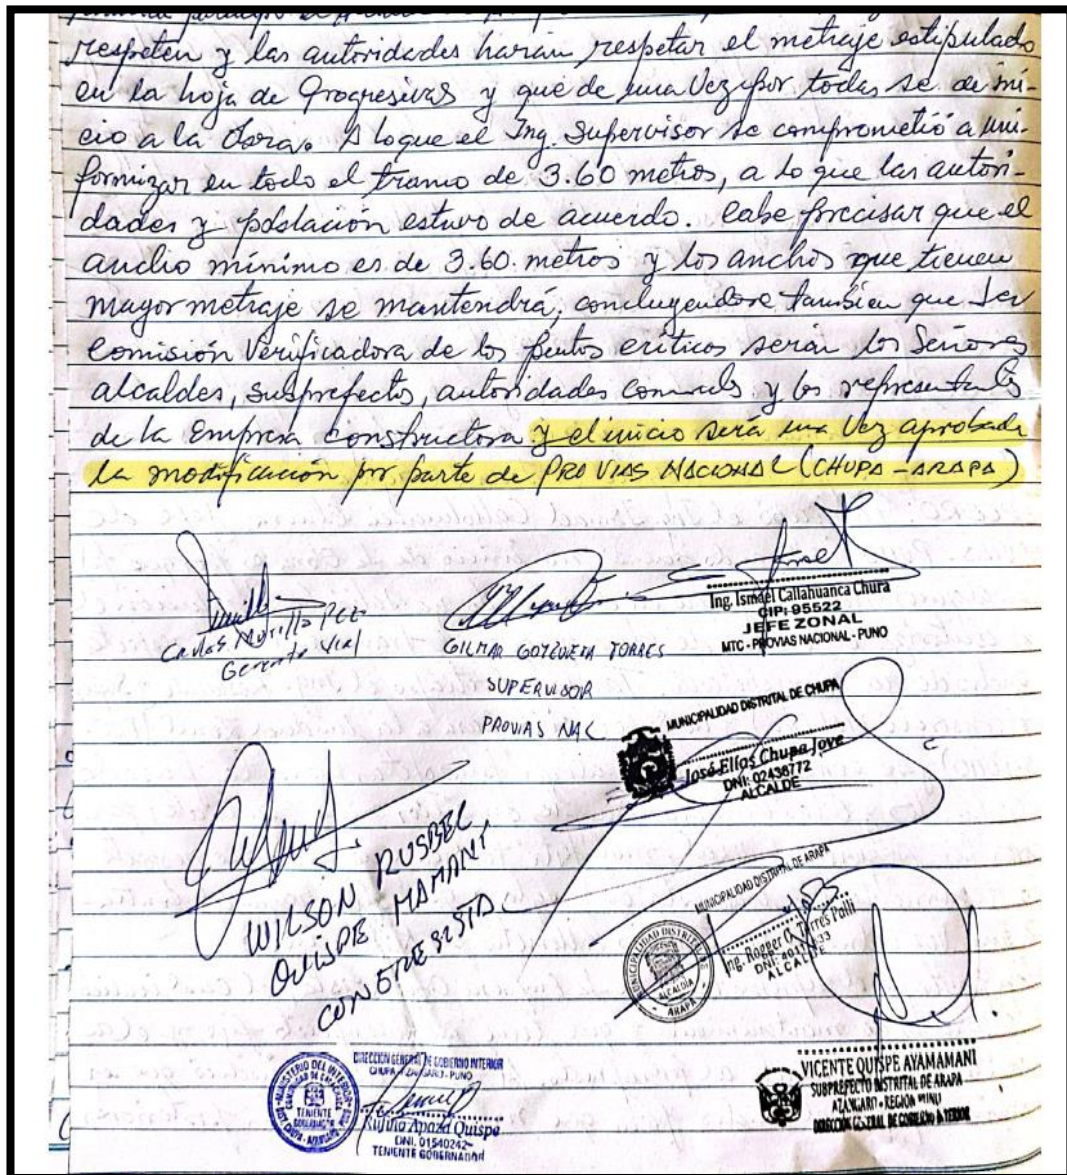 respeten y las autoridades harán respetar el metraje estipulado
en la hoja de Progresivas y que de una vez y por todas se de ini-
cio a la Obra. A lo que el Ing. Supervisor se comprometió a uni-
formizar en todo el tramo de 3.60 metros, a lo que las autori-
dades y población estuvo de acuerdo. Cabe precisar que el
ancho mínimo es de 3.60. metros y los anchos que tienen
mayor metraje se mantendrá, concluyendose también que
Comisión Verificadora de los puntos críticos serán los Señores
alcaldes, subprefectos, autoridades comunales y los representantes
de la Empresa constructora y el inicio será una vez aprobada
la modificación por parte de PROVIAS NACIONAL (CHUPA - ARAPA)
Carlos Murillo
Gerente Vial
GILMAR TORRES
SUPERVISOR
PROVIAS NAC
Ing. Ismael Callahuanca Chura
CIP: 95522
JEFE ZONAL
MTC - PROVIAS NACIONAL - PUNO
MUNICIPALIDAD DISTRITAL DE CHUPA
José Elías Chupa Jove
DNI: 02436772
ALCALDE
WILSON RUSBEL
QUISPE MAMANI
MUNICIPALIDAD DISTRITAL DE ARAPA
Ing. Rogger O. Torres Palli
ALCALDE
MUNICIPALIDAD DISTRITAL DE
ALCALDIA
ARAPA
MINISTERIO DEL INTERIOR
TENIENTE
GOBERNADOR
DIRECCIÓN GENERAL DE GOBIERNO INTERIOR
CHUPA - AZANGARO - PUNO
Rufino Apaza Quispe
DNI. 01540242
TENIENTE GOBERNADOR
VICENTE QUISPE AYAMAMANI
SUBPREFECTO DISTRITAL DE ARAPA
AZANGARO - REGION PUNO
DIRECCIÓN GENERAL DE GOBIERNO INTERIOR